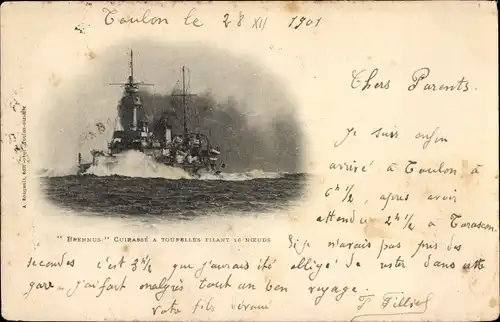 Toulon le 28 XII 1901
Chers Parents.
Je suis enfin
arrivé à Toulon à
6h ½, après avoir
attendu 2h ½ à Tarascon.
"BRENNUS" CUIRASSÉ A TOURELLES FILANT 16 NŒUDS
Si je n'avais pas pris des
secondes c'est 3h ½ que j'aurais été obligé de rester dans cette
gare. J'ai fait malgrés tout un bon voyage.
Votre fils dévoué